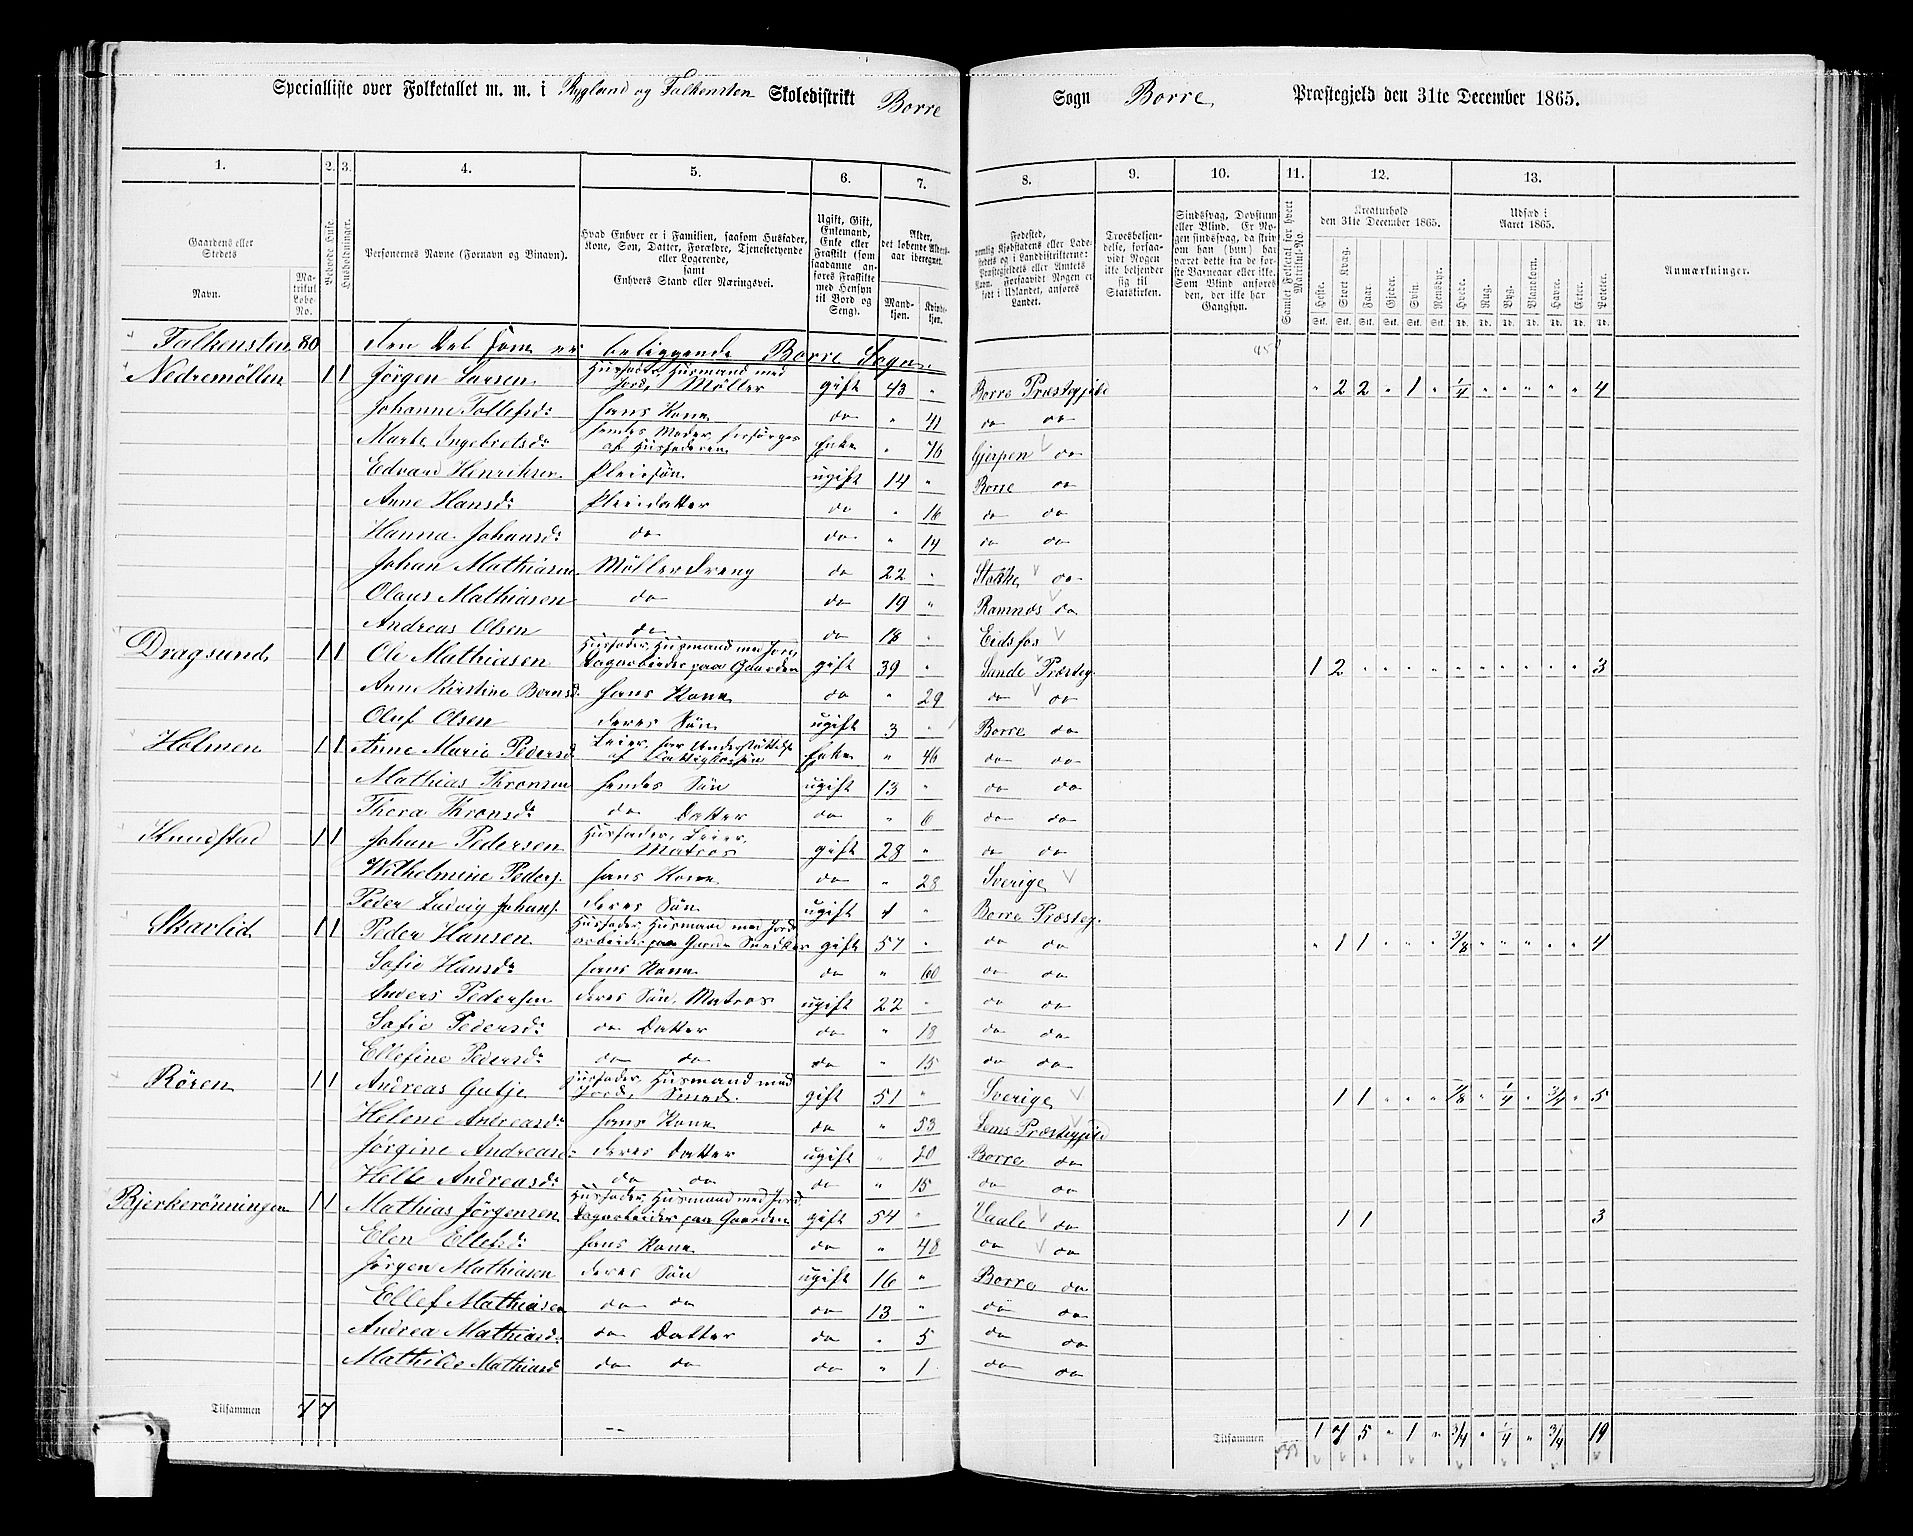 Specialliste over Folketallet m. m. i Rygland og Falkensten Skoledistrikt Borre Sogn Borre Præstegjeld den 31te December 1865.
1. 2. 3. 4. 5. 6. 7. 8. 9. 10. 11. 12. 13.
Gaardens eller Stedets
Navn. Matrikul Løbe-No.
Bebyggede Huse.
Husholdninger.
Personernes Navne (Fornavn og Binavn).
Hvad Enhver er i Familien, saasom Husfader, Kone, Søn, Datter, Forældre, Tjenestetyende eller Logerende, samt Enhvers Stand eller Næringsvei.
Ugift, Gift, Enkemand, Enke eller Fraskilt (som saadanne anføres Fraskilte med Hensyn til Bord og Seng).
Alder, det løbende Alders-aar iberegnet.
Mandkjøn. Kvindekjøn.
Troesbekjendelse, forsaavidt Nogen ikke bekjender sig til Statskirken.
Kreaturhold den 31te December 1865.
Heste. Stort Kvæg. Faar. Gjeder. Svin. Rensdyr.
Udsæd i Aaret 1865.
Hvede. Rug. Byg. Blandkorn. Havre. Erter. Poteter.
Anmærkninger.
Falkensten 80 den Del som er beliggende Borre Sogn.
Nedremöllen 1 1 Jörgen Larsen Husfader, Husmand med Jord, Möller gift 43 " Borre Præstegjeld " 2 2 " 1 " 1/4 " " " " " 4
Johanne Tollefsdr hans Kone do " 41 do do
Marte Ingebretsdr hendes Moder, forsörges af Husfaderen Enke " 76 Gjerpen do
Edvard Henriksen Pleiesön ugift 14 " Borre do
Anne Hansdr Pleiedatter do " 16 do do
Hanna Johansdr do do " 14 do do
Johan Mathiasen Möllerdreng do 22 " Stokke do
Olaus Mathiasen do do 19 " Ramnæs do
Andreas Olsen do do 18 " Eidsfos
Dragsund 1 1 Ole Mathiasen Husfader, Husmand med Jord, Dagarbeider paa Gaarden gift 39 " Sande Præsteg. 1 2 " " " " " " " " " " 3
Anne Kirstine Berntsd. hans Kone do " 29 do do
Oluf Olsen deres Sön ugift 3 " Borre do
Holmen 1 1 Anne Marie Pedersd Leier, har Understöttelse af Fattigkassen Enke " 46 do do
Mathias Thronsen hendes Sön ugift 13 " do do
Thora Thronsdr do Datter do " 6 do do
Knudstad 1 1 Johan Pedersen Husfader, Leier, Matros gift 28 " do do
Wilhelmine Peders. hans Kone do " 28 Sverige
Peder Ludvig Johans. deres Sön ugift 4 " Borre Præsteg.
Skarlid 1 1 Peder Hansen Husfader, Husmand med Jord arbeider paa Gaarden Snedker gift 57 " do do " 1 1 " " " 3/8 " " " " " 4
Sofie Hansdr hans Kone do " 60 do do
Anders Pedersen deres Sön, Matros ugift 22 " do do
Sofie Pedersdr do Datter do " 18 do do
Ellefine Pedersdr do do do " 15 do do
Rören 1 1 Andreas Gutje Husfader, Husmand med Jord, Smed. gift 51 " Sverige 1 1 " " " 1/8 " 1/4 " 3/4 " 5
Helene Andreasdr hans Kone do " 53 Sems Præstegjeld
Jörgine Andreasd. deres Datter ugift " 20 Borre do
Helle Andreasdr do do do " 15 do do
Bjerkerönningen 1 1 Mathias Jörgensen Husfader, Husmand med Jord, Dagarbeider paa Gaarden gift 54 " Vaale do 1 1 3
Elen Ellefsdr hans Kone do " 48 do do
Jörgen Mathiasen deres Sön ugift 16 " Borre do
Ellef Mathiasen do do do 13 " do do
Andrea Mathiasd. do Datter do " 5 do do
Mathilde Mathiasd do do do " 1 do do
Tilsammen 7 7
Tilsammen 1 7 5 " 1 " 3/4 " 1/4 " 3/4 19